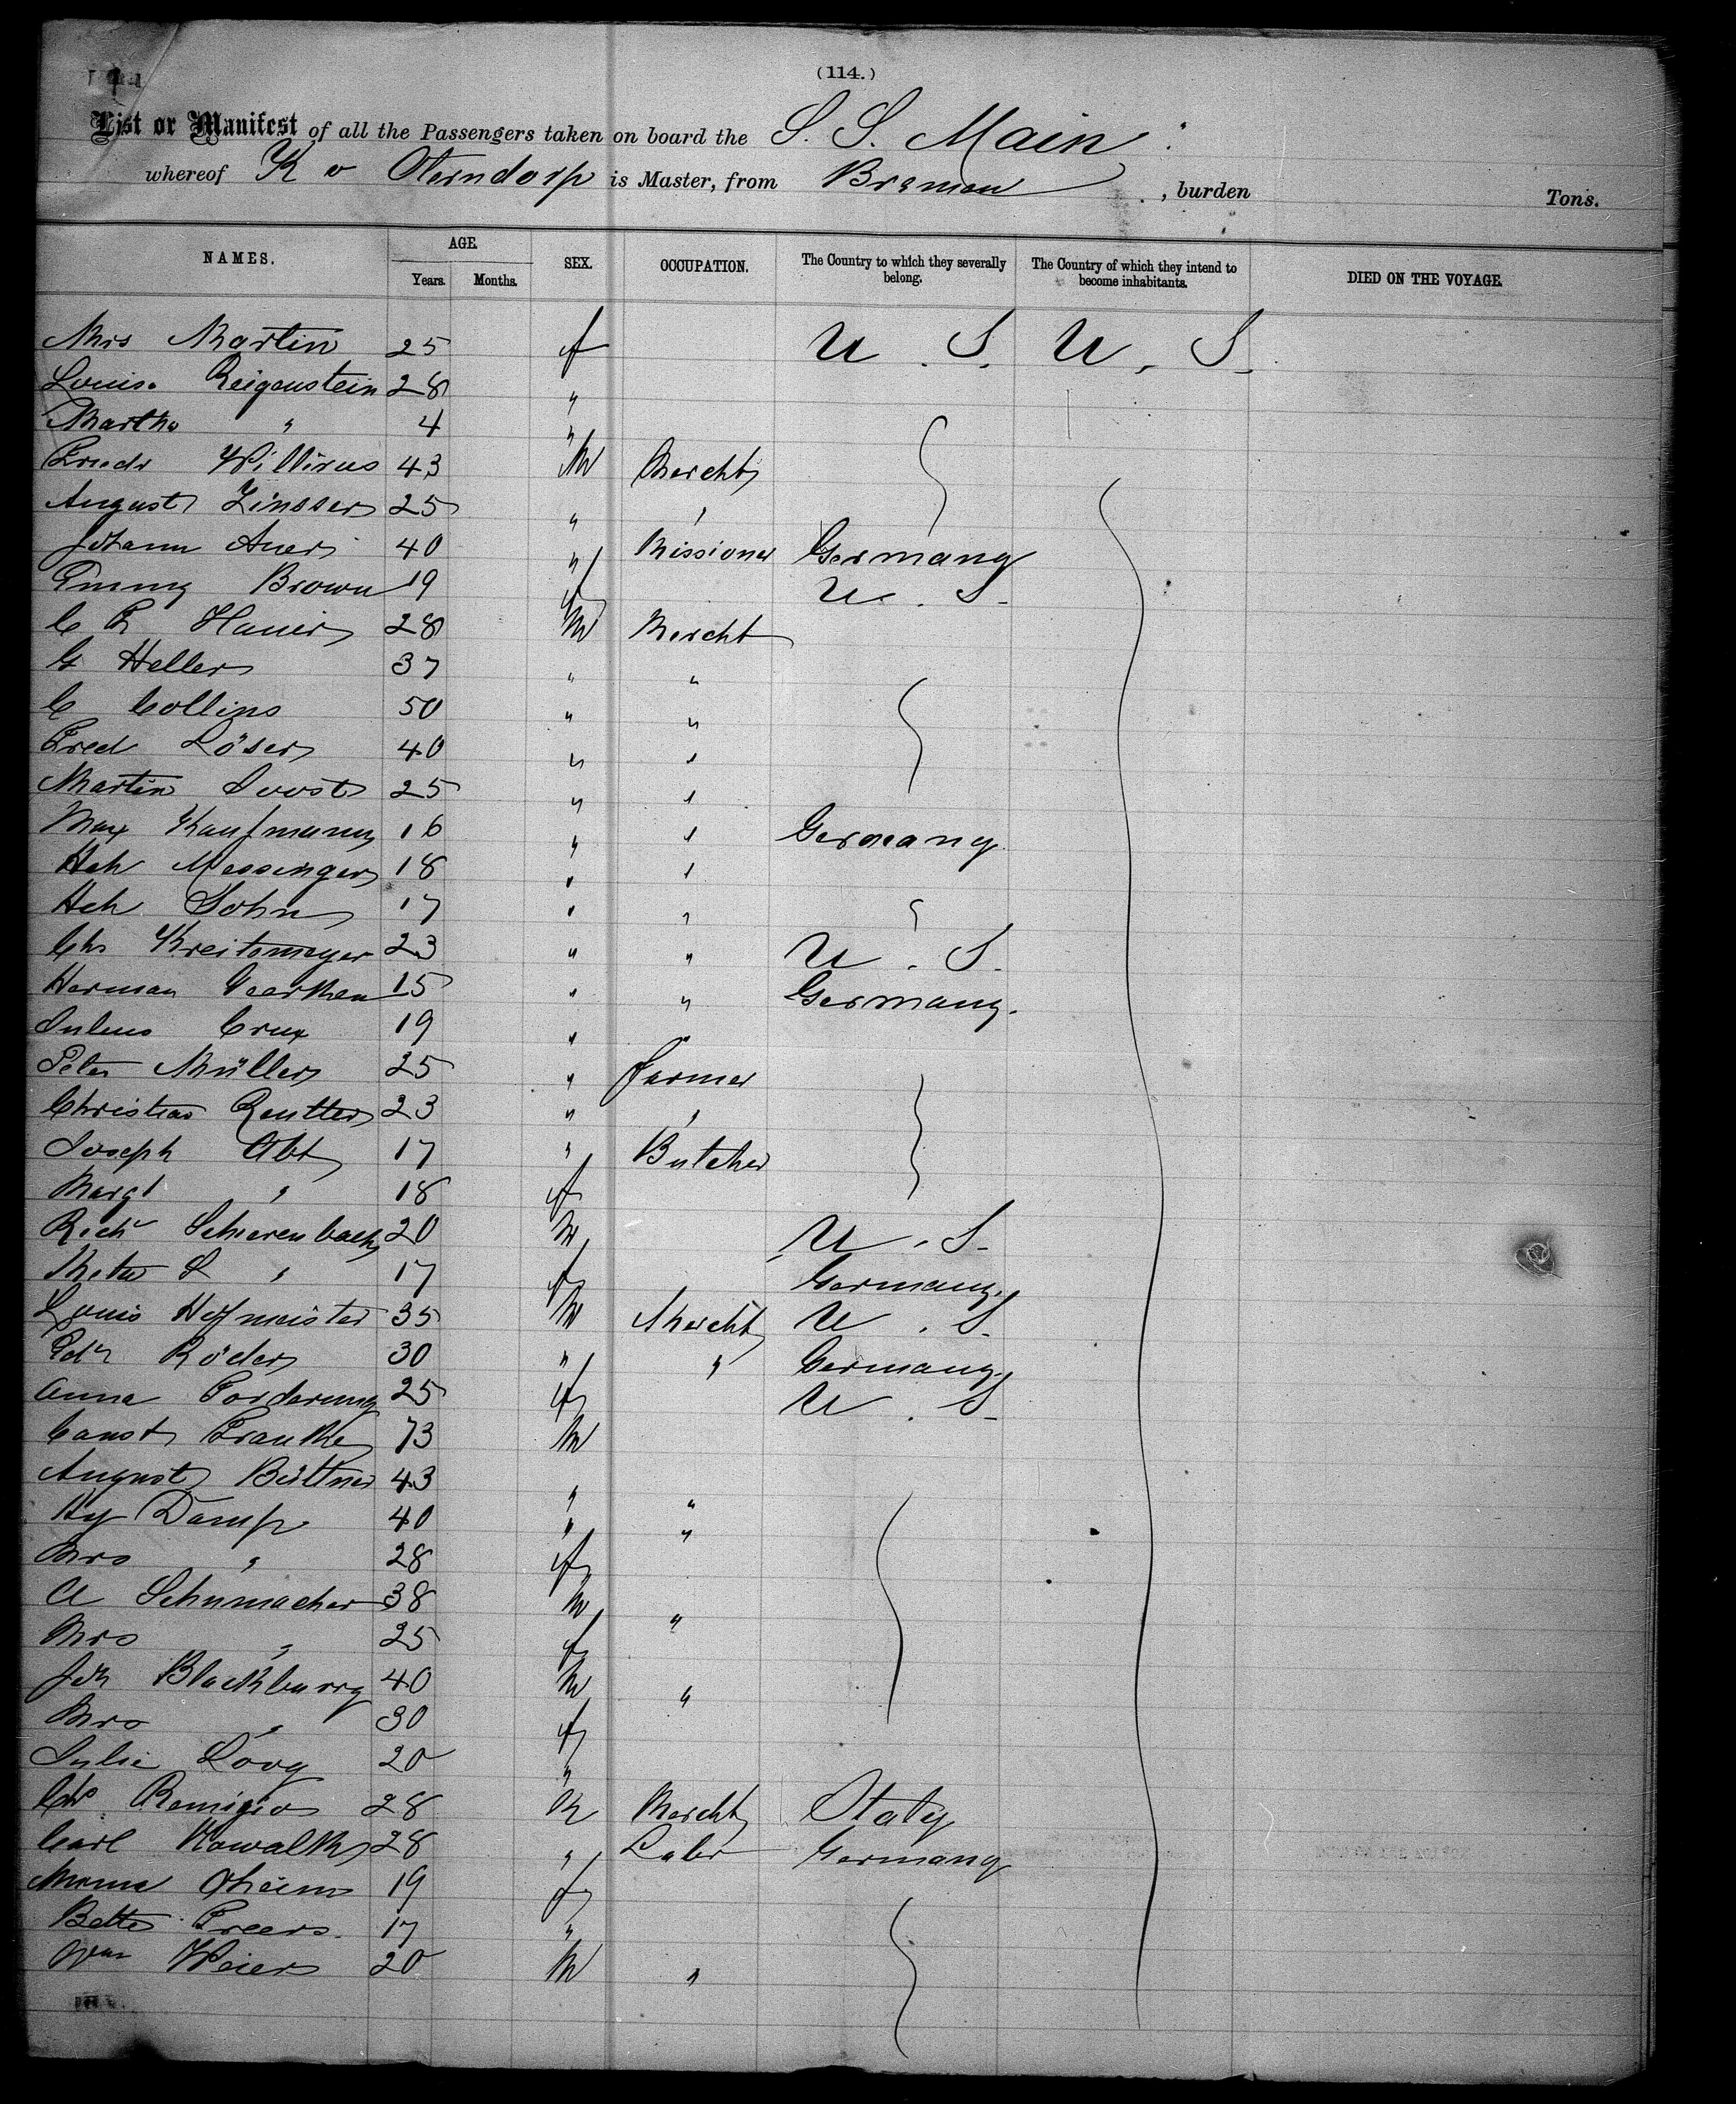 (114.)
List or Manifest of all the Passengers taken on board the S. S. Main
whereof K v Oterndorp is Master, from Bremen, burden Tons.
NAMES. AGE. Years. Months. SEX. OCCUPATION. The Country to which they severally belong. The Country of which they intend to become inhabitants. DIED ON THE VOYAGE.
Mrs Martin 25 f U. S. U. S.
Louise Reigenstein 28 "
Martha " 4 "
Friedr Willirus 43 M Mercht
August Zinsser 25 " "
Johann Auer 40 " Missioner Germany
Emmy Brown 19 f U. S.
C F Hauer 28 M Mercht
G Heller 37 " "
C Collins 50 " "
Fred Löser 40 " "
Martin Joost 25 " "
Max Kaufmann 16 " " Germany
Hch Messinger 18 " "
Hch Sohn 17 " "
Chr Kreitsmeyer 23 " " U. S.
Herman 15 " " Germany.
Julius Crux 19 " "
Peter Müller 25 " Farmer
Christian Reutter 23 " "
Joseph Abt 17 " Butcher
Margt " 18 f
Richd Schierenbach 20 M U. S.
L " 17 f Germany.
Louis Hofmeister 35 M Mercht U. S.
Edr Röder 30 " " Germany.
Anna Forderung 25 f U. S.
Const Franke 73 M
August Büttner 43 " "
Hy Damp 40 " "
Mrs " 28 f
A Schumacher 38 M "
Mrs " 25 f
Joh Blackburry 40 M "
Mrs " 30 f
Julie 20 "
Remigio 28 M Mercht Italy
Carl Kowalk 28 " Labr Germany
19 f
Bette Freers 17 "
Wm Weier 20 M "